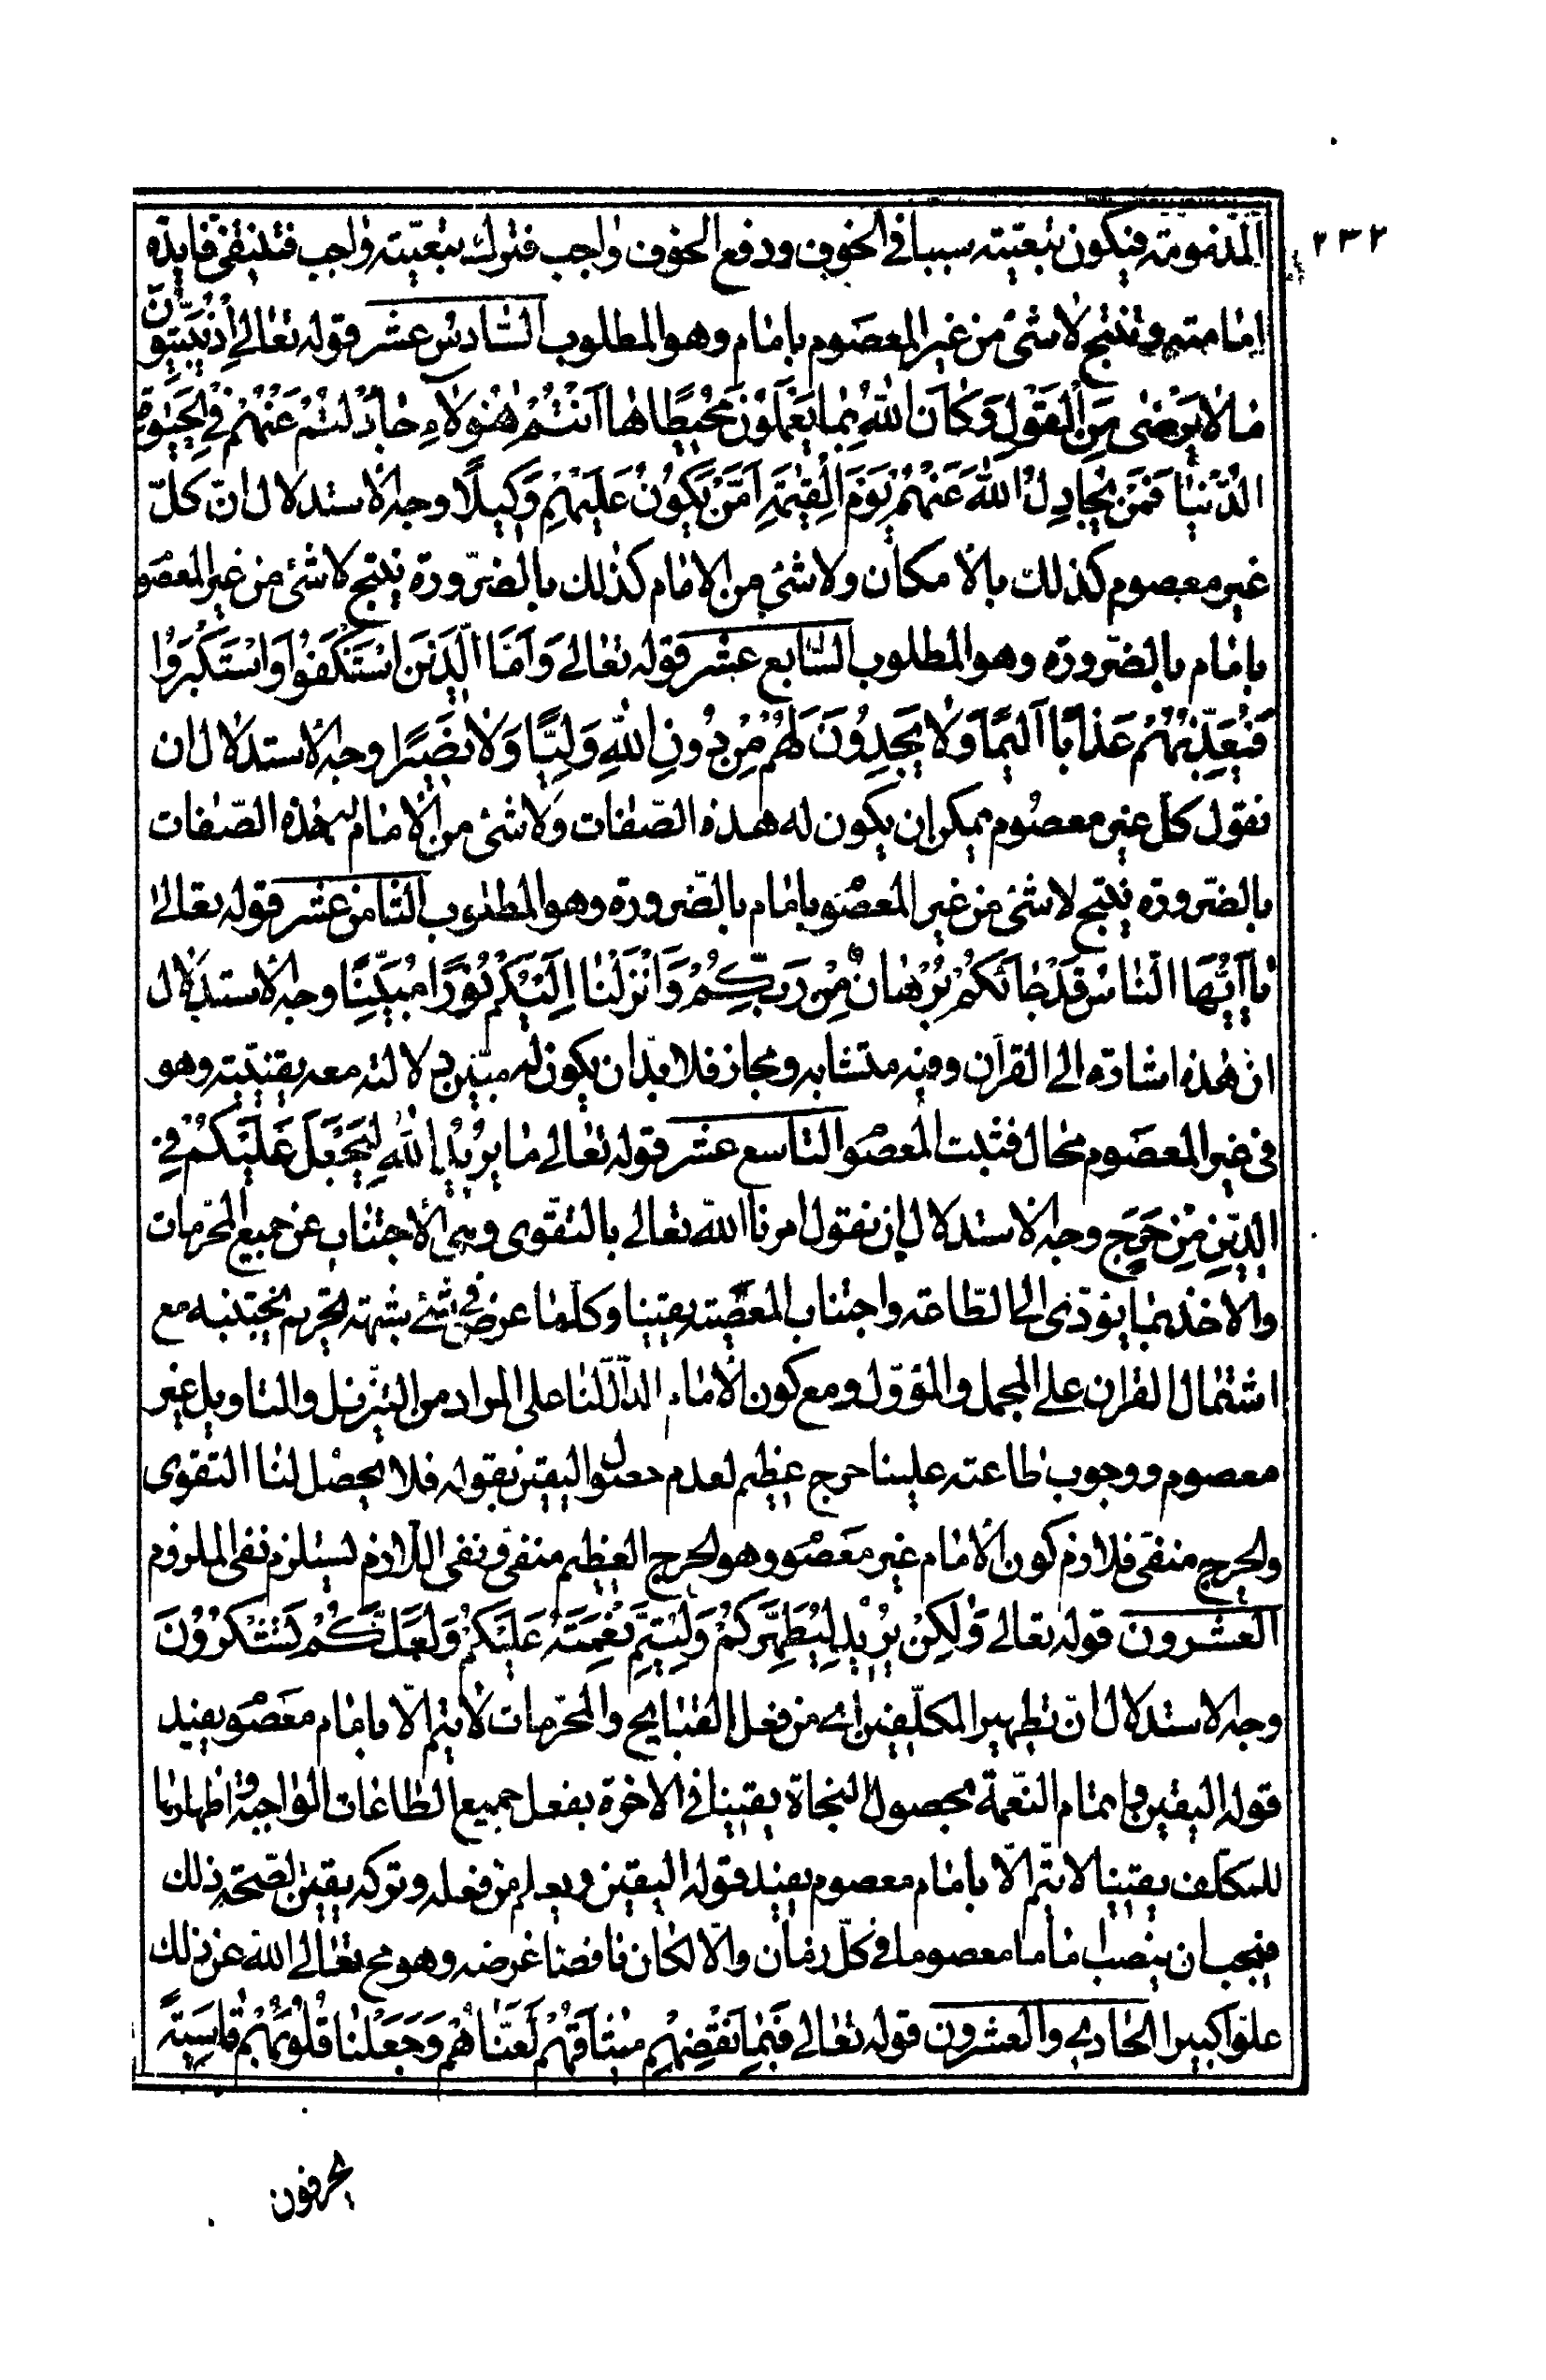 ٢٣٢
المذمومة فيكون تبعيته سببا فى الخوف ودفع الخوف واجب فترك تبعيته واجب فتنتفى فايدة
إمامته وتنتج لا شئ من غير المعصوم بإمام وهو المطلوب السّادس عشر قوله تعالى إِذْ يُبَيِّتُونَ
مَا لَا يَرْضَى مِنَ الْقَوْلِ وَكَانَ اللهُ بِمَا يَعْمَلُونَ مُحِيطًا هَا أَنْتُمْ هٰؤُلَاءِ جَادَلْتُمْ عَنْهُمْ فِي الْحَيٰوةِ
الدُّنْيَا فَمَنْ يُجَادِلُ اللهَ عَنْهُمْ يَوْمَ الْقِيٰمَةِ اَمَّنْ يَكُونُ عَلَيْهِمْ وَكِيلًا وجه الاستدلال انّ كلّ
غير معصوم كذلك بالامكان ولا شئ من الامام كذلك بالضّرورة ينتج لا شئ من غير المعصو
بامام بالضّرورة وهو المطلوب السّابع عشر قوله تعالى وَاَمَّا الَّذِينَ اسْتَنْكَفُوا وَاسْتَكْبَرُوا
فَيُعَذِّبُهُمْ عَذَابًا اَلِيمًا وَلَا يَجِدُونَ لَهُمْ مِنْ دُونِ اللهِ وَلِيًّا وَلَا نَصِيرًا وجه الاستدلال ان
نقول كل غير معصوم يمكن ان يكون له هذه الصّفات ولا شئ من الامام لهذه الصّفات
بالضّرورة ينتج لا شئ من غير المعصو بامام بالضّرورة وهو المطلوب الثّامن عشر قوله تعالى
يَا اَيُّهَا النَّاسُ قَدْ جَائَكُمْ بُرْهَانٌ مِنْ رَبِّكُمْ وَاَنْزَلْنَا اِلَيْكُمْ نُورًا مُبِينًا وجه الاستدلال
ان هذه اشارة الى القرآن وفيه متشابه ومجاز فلا بدّ ان يكون له مبيّن دلالته معه يقينيّة وهو
فى غير المعصوم محال فثبت المعصو التاسع عشر قوله تعالى مَا يُرِيدُ اللهُ لِيَجْعَلَ عَلَيْكُمْ فِي
الدِّينِ مِنْ حَرَجٍ وجه الاستدلال ان نقول امرنا الله تعالى بالتقوى وهى الاجتناب عن جميع المحرمات
والاخذ بما يؤدّى الى الطّاعة واجتناب المعصية يقينا وكلّما عرض فى شئ شبهة تحريم يجتنبه مع
اشتمال القران على المجمل والمؤوّل ومع كون الامام الدالّ لنا على المراد من التنزيل والتاويل غير
معصوم ووجوب طاعته علينا حرج عظيم لعدم حصول اليقين بقوله فلا يحصل لنا التقوى
والحرج منفى فلازم كون الامام غير معصو وهو الحرج العظيم منفى ونفى اللازم يستلزم نفى الملزوم
العشرون قوله تعالى وَلٰكِنْ يُرِيدُ لِيُطَهِّرَكُمْ وَلِيُتِمَّ نِعْمَتَهُ عَلَيْكُمْ وَلَعَلَّكُمْ تَشْكُرُونَ
وجه الاستدلال انّ تطهير المكلّفين اى من فعل القبايح والمحرمات لا يتم الّا بامام معصو يفيد
قوله اليقين واتمام النّعمة بحصول النجاة يقينا فى الاخرة بفعل جميع الطاعات الواجبة واظهارها
للمكلّف يقينا لا يتم الّا بامام معصوم يفيد قوله اليقين ويعلم من فعله وتركه يقين لصحة ذلك
فيجب ان ينصب اماما معصوما فى كلّ زمان والّا لكان ناقضا غرضه وهو مح تعالى الله عن ذلك
علوّا كبيرا الحادى والعشرون قوله تعالى فَبِمَا نَقْضِهِمْ مِيثَاقَهُمْ لَعَنَّاهُمْ وَجَعَلْنَا قُلُوبَهُمْ قَاسِيَةً
يحرفون